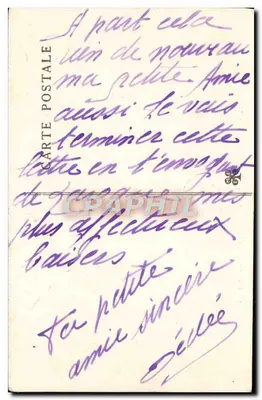 CARTE POSTALE
A part cela
rien de nouveau
ma petite Amie
aussi Je vais
terminer cette
lettre en t'envoyant
de mes
plus affectueux
baisers
Ta petite
amie sincère
Dédée